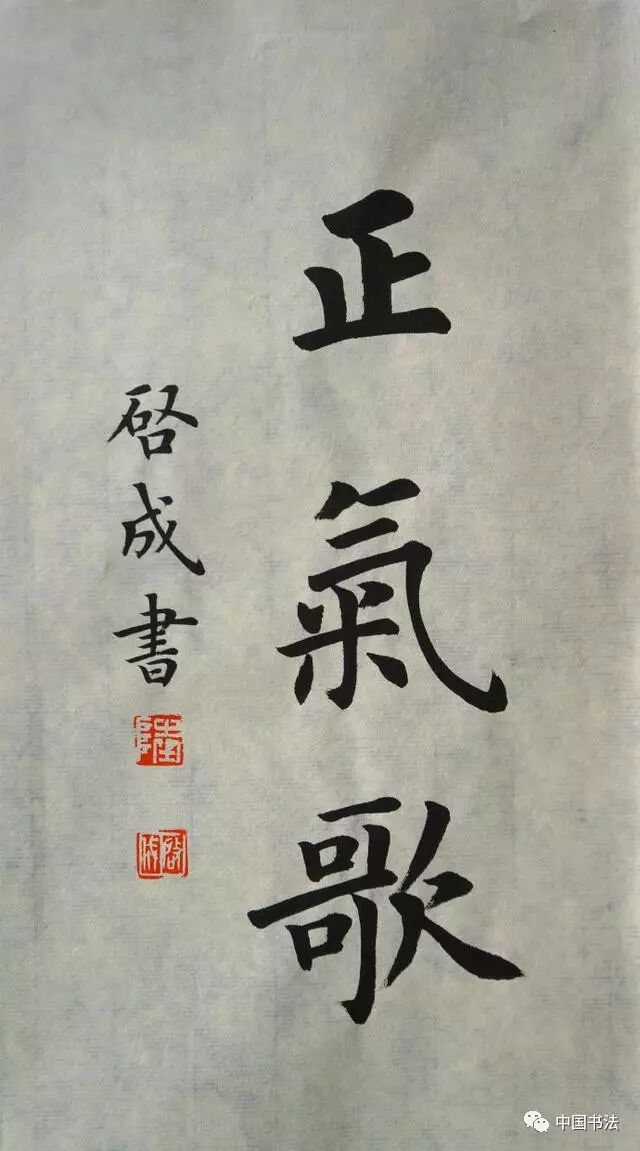 正氣歌
啓成書
中国书法